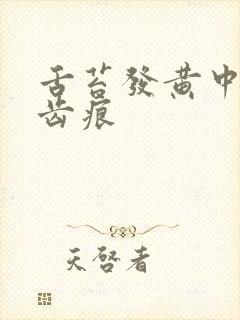 舌苔發黄中
齿痕
天啓者